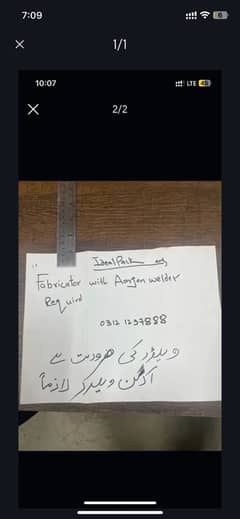 7:09
6
1/1
10:07
LTE 48
2/2
Ideal Pack
Fabricator with Aargon welder
Requird
0312 1297888
ویلڈر کی ضرورت ہے
آرگن ویلڈر لازماً